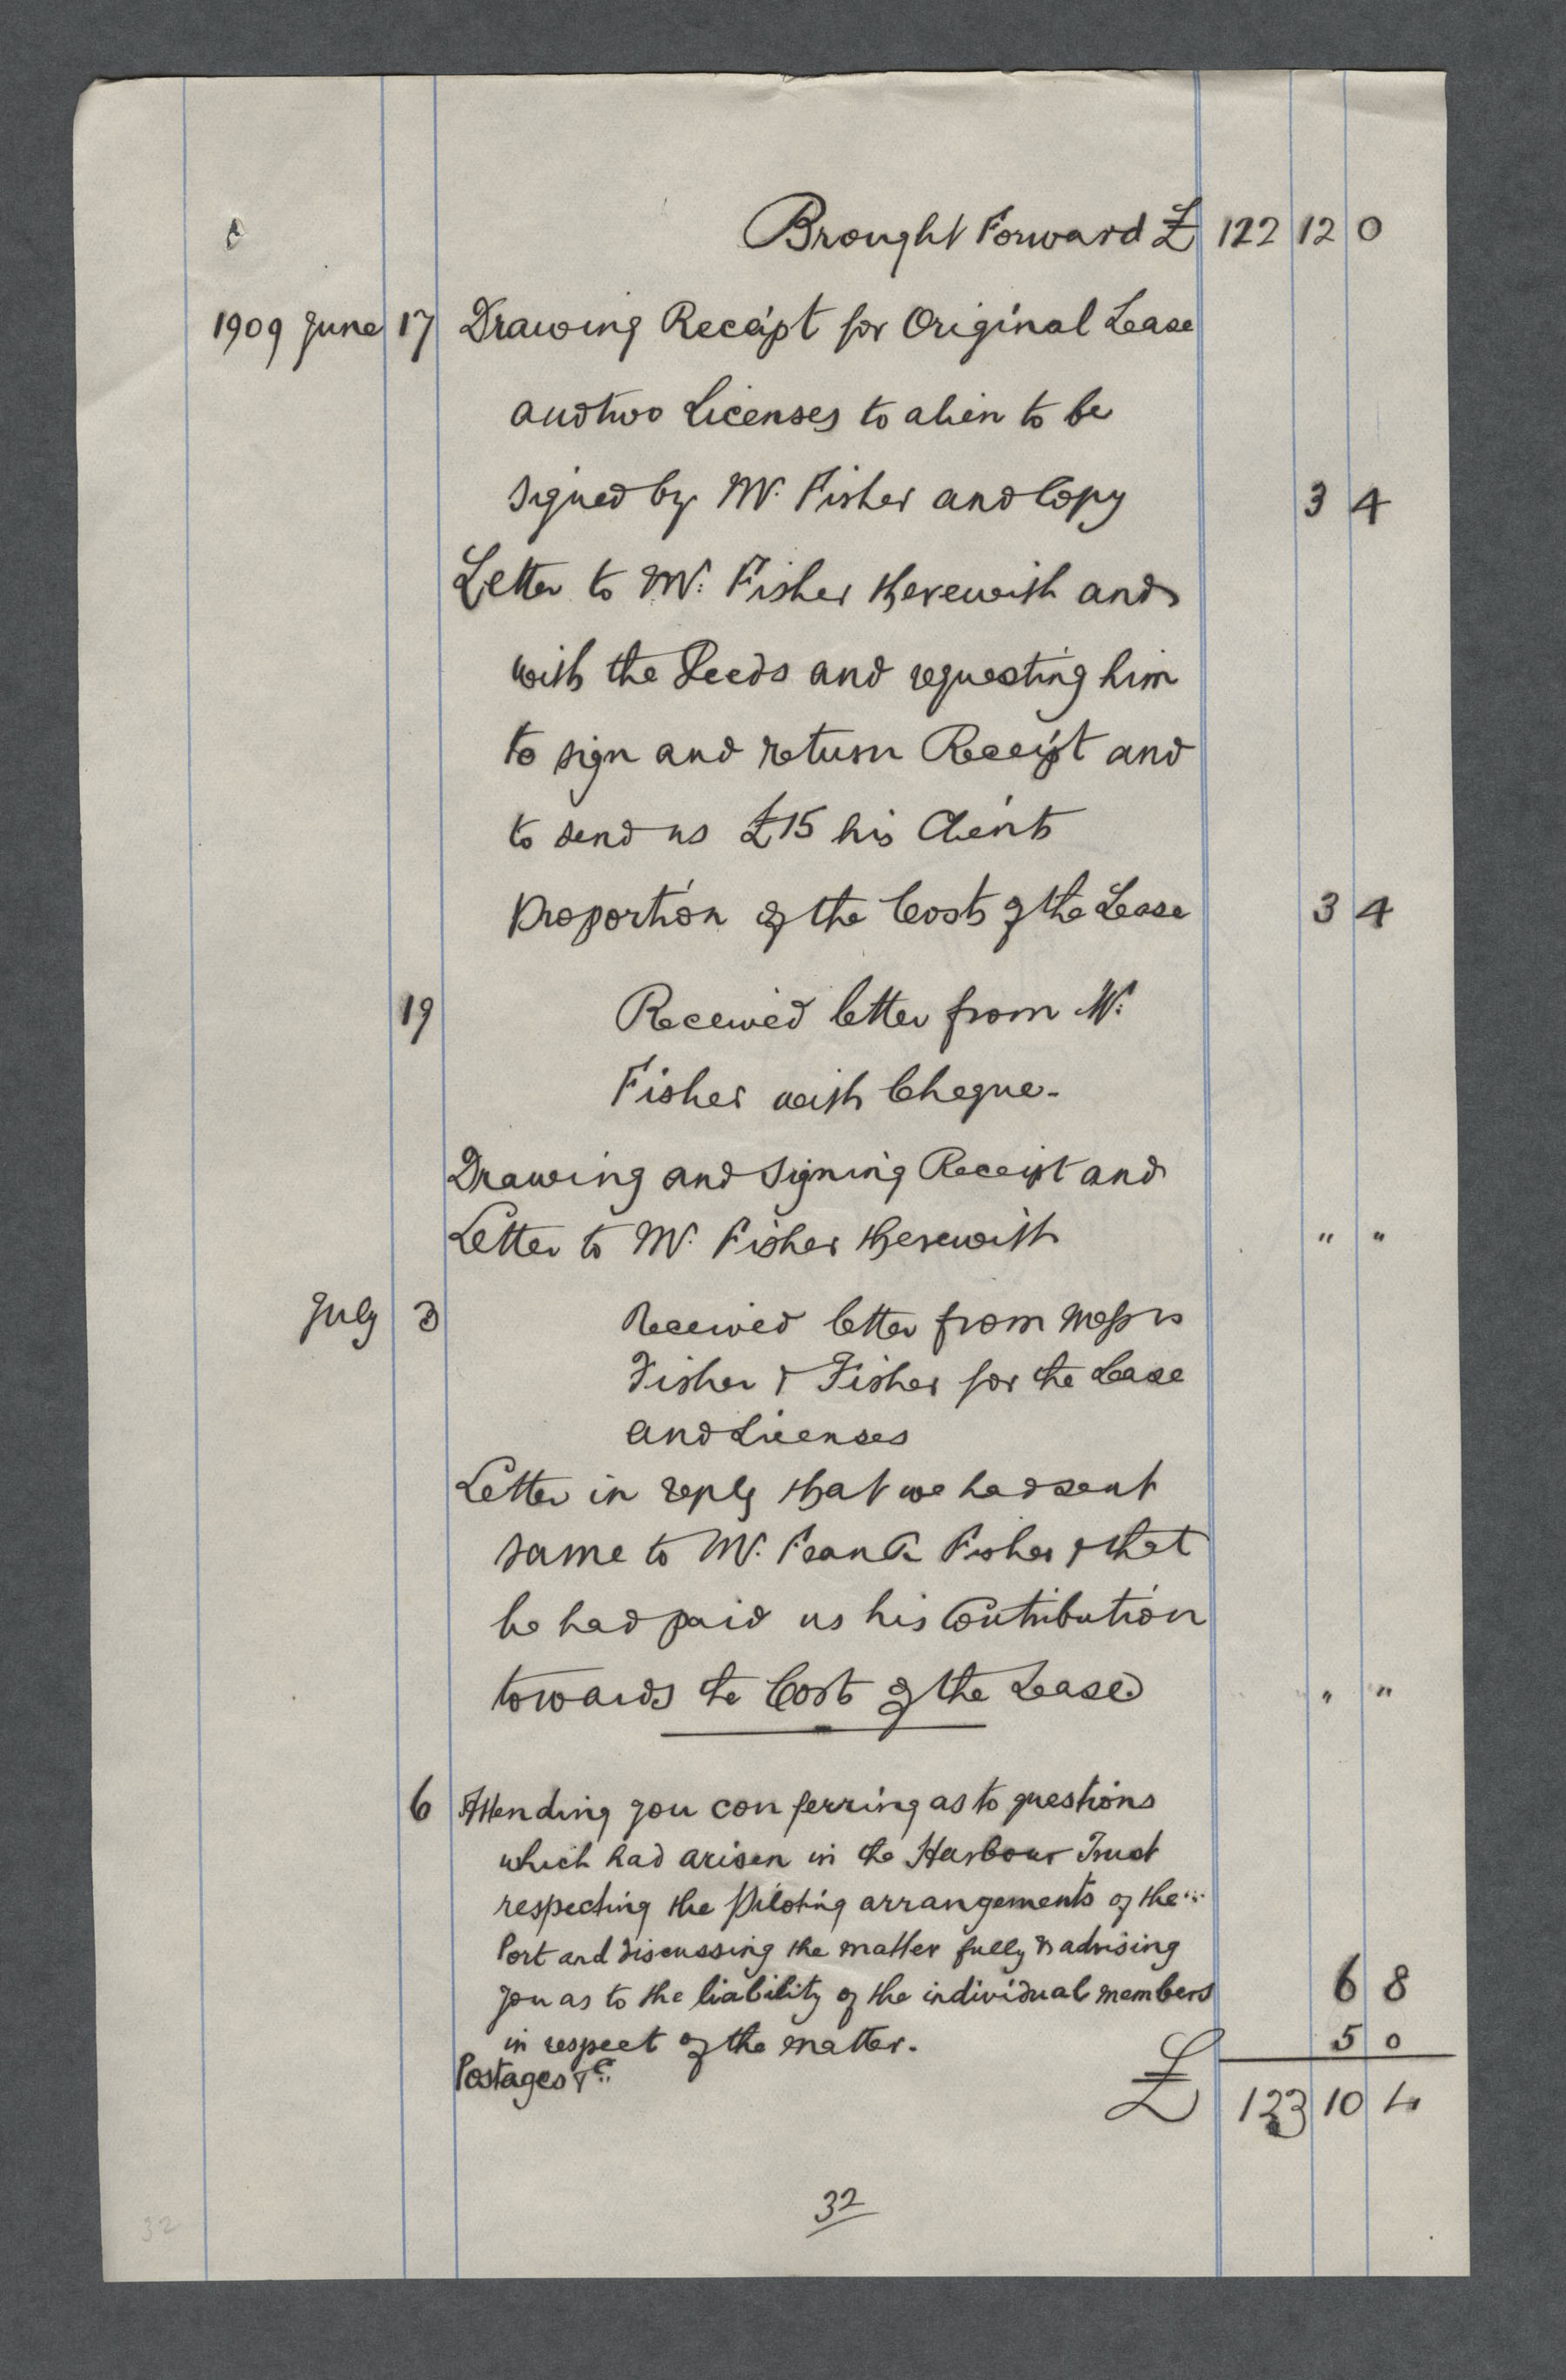 Brought Forward £ 122 12 0
1909 June 17 Drawing Receipt for Original Lease
and two Licenses to alien to be
signed by Mr. Fisher and Copy 3 4
Letter to Mr. Fisher therewith and
with the Deeds and requesting him
to sign and return Receipt and
to send us £15 his Clients
proportion of the Costs of the Lease 3 4
19 Received letter from Mr.
Fisher with Cheque-
Drawing and signing Receipt and
Letter to Mr. Fisher therewith " "
July 3 Received letter from Messrs
Fisher & Fisher for the Lease
and Licenses
Letter in reply that we had sent
same to Mr. Fisher & that
he had paid us his Contribution
towards the Costs of the Lease " "
6 Attending you conferring as to questions
which had arisen in the Harbour Trust
respecting the Piloting arrangements of the
Port and discussing the matter fully & advising
you as to the liability of the individual members 6 8
in respect of the matter.
Postages &c 5 0
£ 123 10 4
32
32